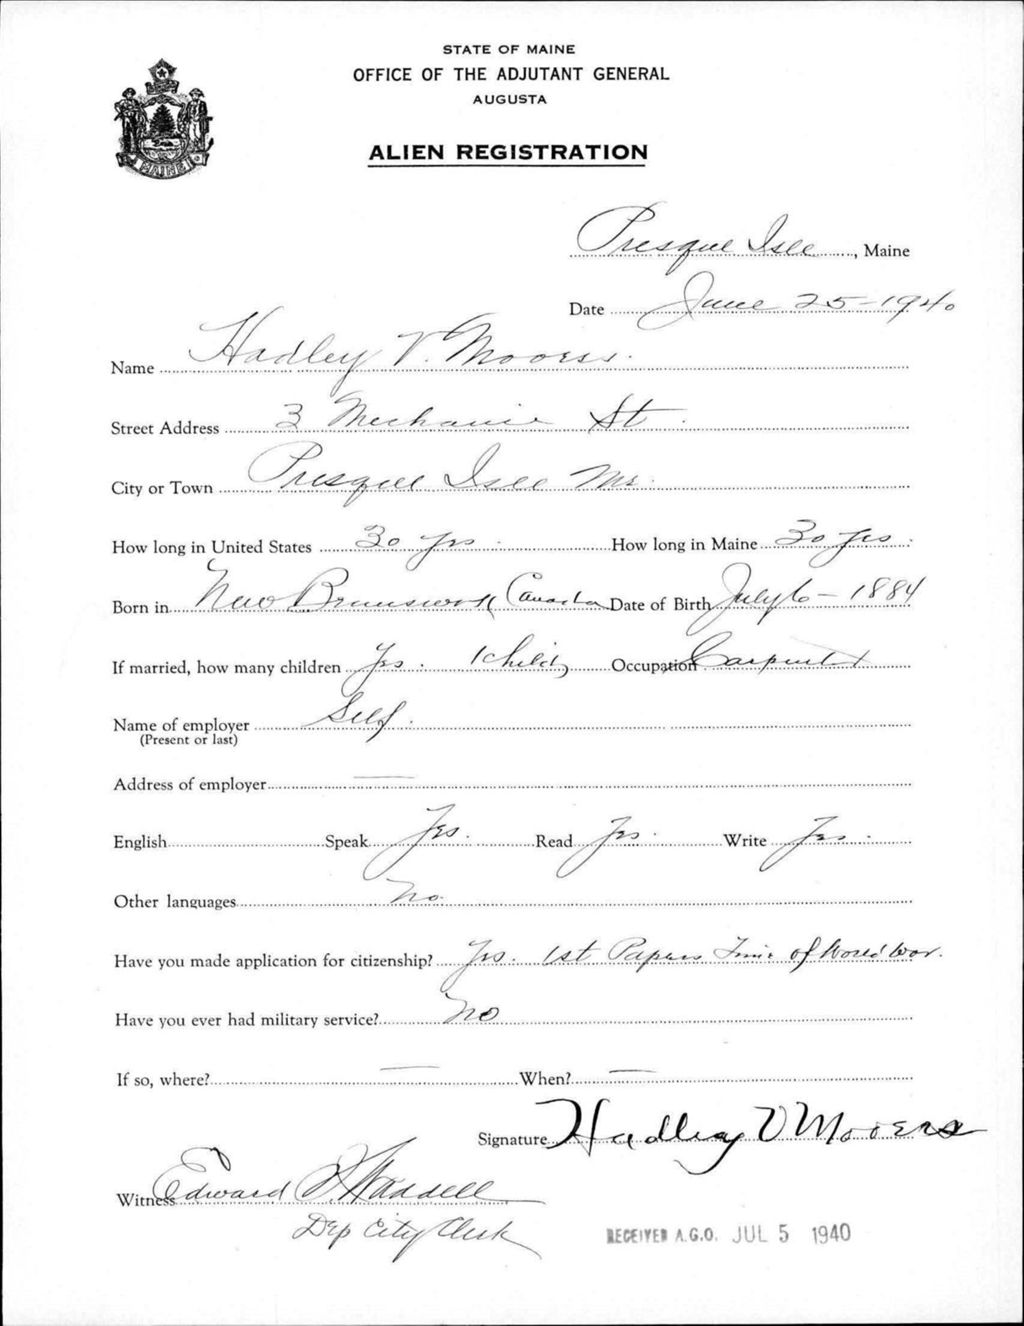 STATE OF MAINE
OFFICE OF THE ADJUTANT GENERAL
AUGUSTA
ALIEN REGISTRATION
MAINE
Presque Isle, Maine
Date June 25-1940
Name Hadley V. Mooers.
Street Address 3 Mechanic St.
City or Town Presque Isle Me.
How long in United States 30 yrs. How long in Maine 30 yrs.
Born in New Brunswick Canada Date of Birth July 6 - 1884
If married, how many children Yes. 1 child Occupation Carpenter
Name of employer Self.
(Present or last)
Address of employer —
English Speak Yes. Read Yes. Write Yes.
Other languages No.
Have you made application for citizenship? Yes. 1st Papers Time of World War.
Have you ever had military service? No
If so, where? — When? —
Signature Hadley V Mooers
Witness Edward Waddell
Dep City Clerk
RECEIVED A.G.O. JUL 5 1940